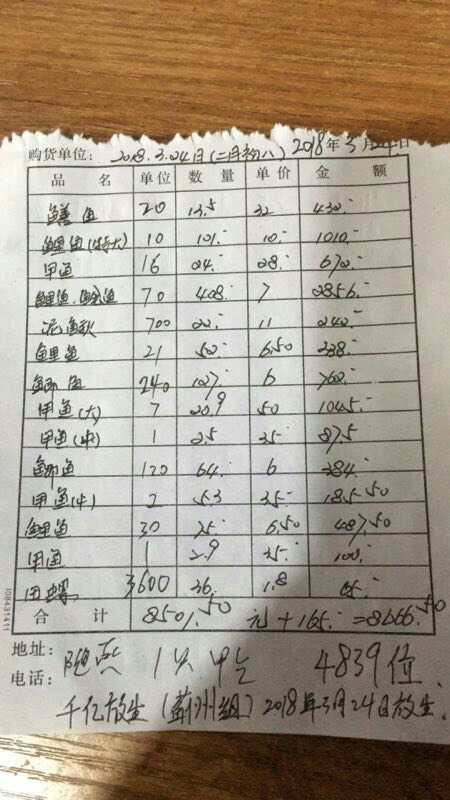 购货单位： 2018.3.24日(二月初八) 2018年3月24日
品 名 单位 数 量 单价 金 额
鳝鱼 20 13.5 32 432.-
鲤鱼(特大) 10 101.- 10.- 1010.-
甲鱼 16 24.- 28.- 672.-
鲤鱼. 鱼 70 408.- 7 2856.-
泥鱼秋 700 22.- 11 242.-
鲤鱼 21 52.- 6.50 338.-
鲫鱼 240 127.- 6 762.-
甲鱼(大) 7 20.9 50 1045.-
甲鱼(中) 1 2.5 35.- 87.5
鲫鱼 120 64.- 6 384.-
甲鱼(中) 2 5.3 35.- 185.50
鲤鱼 30 75.- 6.50 487.50
甲鱼 1 2.9 35.- 100.-
田螺 3600 36.- 1.8 65.-
合 计 8501.50 元+165.-=8666.50
地址：
电话： 4839位
千亿放生(蓟州组)2018年3月24日放生.